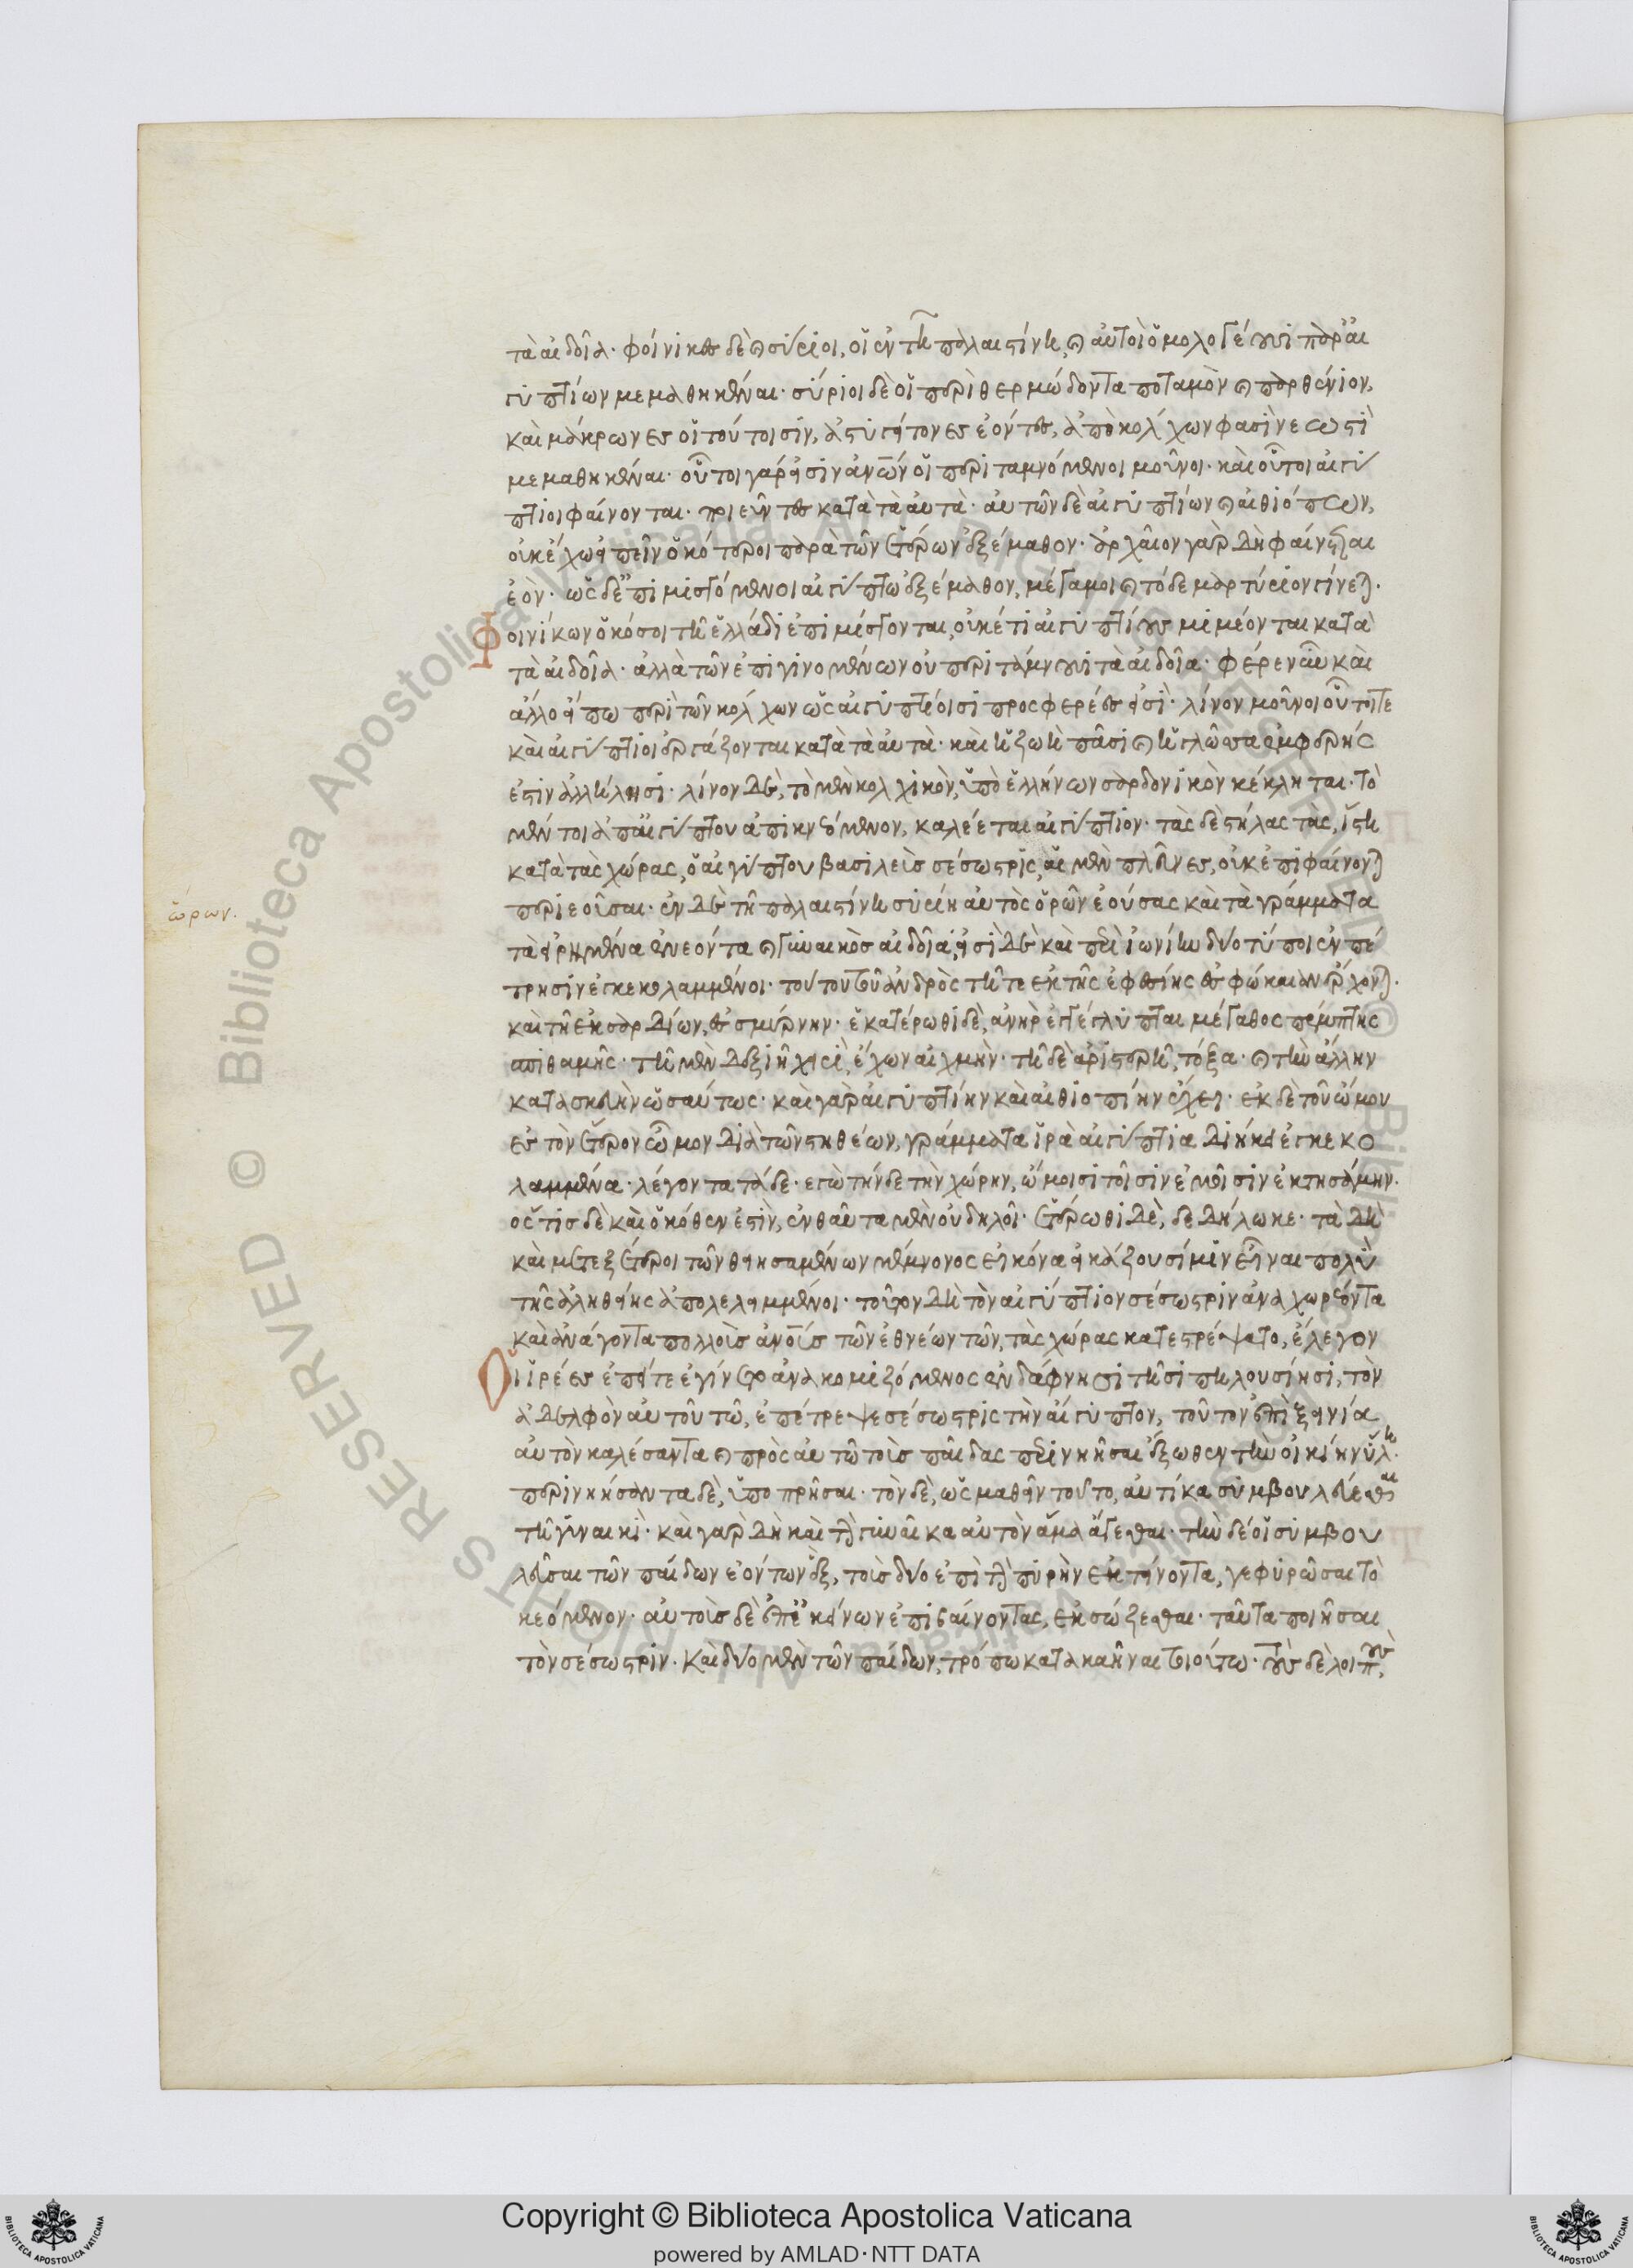 τὰ αἰδοῖα· φοίνικες δὲ καὶ σύριοι, οἱ ἐν τῆ παλαιστίνη, καὶ αὐτοὶ ὁμολογέουσι παρ' αἰ
γυπτίων μεμαθηκέναι· σύριοι δὲ οἱ περὶ θερμώδοντα ποταμὸν καὶ παρθένιον,
καὶ μάκρωνες οἱ τούτοισιν, ἀστυγείτονες ἐόντες, ἀπὸ κολχων φασὶ νεωστὶ
μεμαθηκέναι· οὗτοι γάρ εἰσιν ἀνων οἱ περιταμνόμενοι μοῦνοι· καὶ οὗτοι αἰγυ
πτίοι φαίνονται· ποιεῦντες κατὰ τὰ αυτὰ· αυτῶν δὲ αἰγυπτίων καὶ αἰθιόπων,
οὐκ ἔχω εἰπεῖν ὁκότεροι παρὰ τῶν ἑτέρων ἐξέμαθον· ἀρχαῖον γὰρ δὴ φαίνεται
ἐὸν· ὡς δὲ ἐπιμισγόμενοι αἰγύπτω ἐξέμαθον, μέγα μοι καὶ τόδε μαρτύριον γίνεται.
Φοινίκων ὁκόσοι τῆ ἑλλάδι ἐπιμίσγονται, οὐκέτι αἰγυπτίους μιμέονται κατὰ
τὰ αἰδοῖα· ἀλλὰ τῶν ἐπιγινομένων οὐ περιτάμνουσι τὰ αἰδοῖα· φέρε νῦν καὶ
ἄλλο εἴπω περὶ τῶν κολχων ὡς αἰγυπτίοισι προσφερέες εἰσὶ· λίνον μοῦνοι οὗτοί τε
καὶ αἰγύπτιοι ἐργάζονται κατὰ τὰ αυτὰ· καὶ ἡ ζωὴ πᾶσι καὶ ἡ γλῶσσα ἐμφερής
ἐστιν ἀλλήλησι· λίνον δὲ, τὸ μὲν κολχικὸν, ὑπὸ ἑλλήνων σαρδονικὸν κέκληται· τὸ
μέν τοι ἀπ' αἰγύπτου ἀπικνεόμενον, καλέεται αἰγύπτιον· τὰς δὲ στήλας τὰς, ἵστη
κατὰ τὰς χώρας, ὁ αἰγύπτου βασιλεὺς σέσωστρις, αἱ μὲν πλεῦνες, οὐκἐπιφαίνονται
περιεοῦσαι· ἐν δὲ τῆ παλαιστίνη συρίη αὐτὸς ὁρῶν ἐούσας καὶ τὰ γράμματα
ὥρων.
τὰ εἰρημένα ἐνεόντα καὶ γυναικὸς αἰδοῖα, εἰσὶ δὲ καὶ περὶ ἰωνίην δύο τύποι ἐν πέ
τρησιν ἐγκεκολαμμένοι· τούτου τοῦ ἀνδρὸς τῆ τε ἐκ τῆς ἐφεσίης ἐς φώκαιαν ἔρχονται.
καὶ τῆ ἐκ σαρδίων, ἐς σμύρνην· ἑκατέρωθι δὲ, ἀνὴρ ἐγγέγλυπται μέγαθος πέμπτης
σπιθαμῆς· τῆ μὲν δεξιῆ χειρὶ, ἔχων αἰχμὴν· τῆ δὲ ἀριστερῆ, τόξα· καὶ τὴν ἄλλην
κατασκευὴν ὡσαύτως· καὶ γὰρ αἰγυπτίην καὶ αἰθιοπίην ἔχει· ἐκ δὲ τοῦ ὤμου
ἐς τὸν ἕτερον ὦμον διὰ τῶν στηθέων, γράμματα ἱρὰ αἰγύπτια διήκει ἐγκεκο
λαμμένα· λέγοντα τάδε· ἐγὼ τήνδε τὴν χώρην, ὤμοισι τοῖσιν ἐμοῖσιν ἐκτησάμην·
ὅστις δὲ καὶ ὁκόθεν ἐστὶν, ἐνθαῦτα μὲν οὐ δηλοῖ· ἑτέρωθι δὲ, δεδήλωκε· τὰ δὴ
καὶ μετεξέτεροι τῶν θηησαμένων μέμνονος εἰκόνα εἰκάζουσί μιν εἶναι πολὺ
τῆς ἀληθείης ἀπολελειμμένοι· τοῦτον δὴ τὸν αἰγύπτιον σέσωστριν ἀναχωρέοντα
καὶ ἀνάγοντα πολλοὺς ἀνους τῶν ἐθνέων τῶν, τὰς χώρας κατεστρέψατο, ἔλεγον
Οἱ ἱρέες ἐπείτε ἐγίνετο ἀνακομιζόμενος ἐν δάφνησι τῆσι πηλουσίησι, τὸν
ἀδελφὸν αὐτοῦ τῶ, ἐπέτρεψε σέσωστρις τὴν αἴγυπτον, τοῦτον ἐπὶ ξείνια
αὐτὸν καλέσαντα καὶ πρὸς αὐτῶ τοὺς παῖδας περινηῆσαι ἔξωθεν τὴν οἰκίην ὕλη.
περινηήσαντα δὲ, ὑποπρῆσαι· τὸν δὲ, ὡς μαθεῖν τοῦτο, αὐτίκα συμβουλεύεσθαι
τῆ γυναικὶ· καὶ γὰρ δὴ καὶ τὴν γυναῖκα αὐτὸν ἅμα ἄγεσθαι· τὴν δέ οἱ συμβου
λεῦσαι τῶν παίδων ἐόντων ἓξ, τοὺς δύο ἐπὶ τὴν πυρὴν ἐκτείνοντα, γεφυρῶσαι τὸ
καιόμενον· αὐτοὺς δὲ ἐπ' ἐκείνων ἐπιβαίνοντας, ἐκσώζεσθαι· ταῦτα ποιῆσαι
τὸν σέσωστριν. Καὶ δύο μὲν τῶν παίδων, τρόπω κατακαῆναι τοιούτω· τοὺς δὲ λοιποὺς,
Copyright © Biblioteca Apostolica Vaticana
powered by AMLAD·NTT DATA